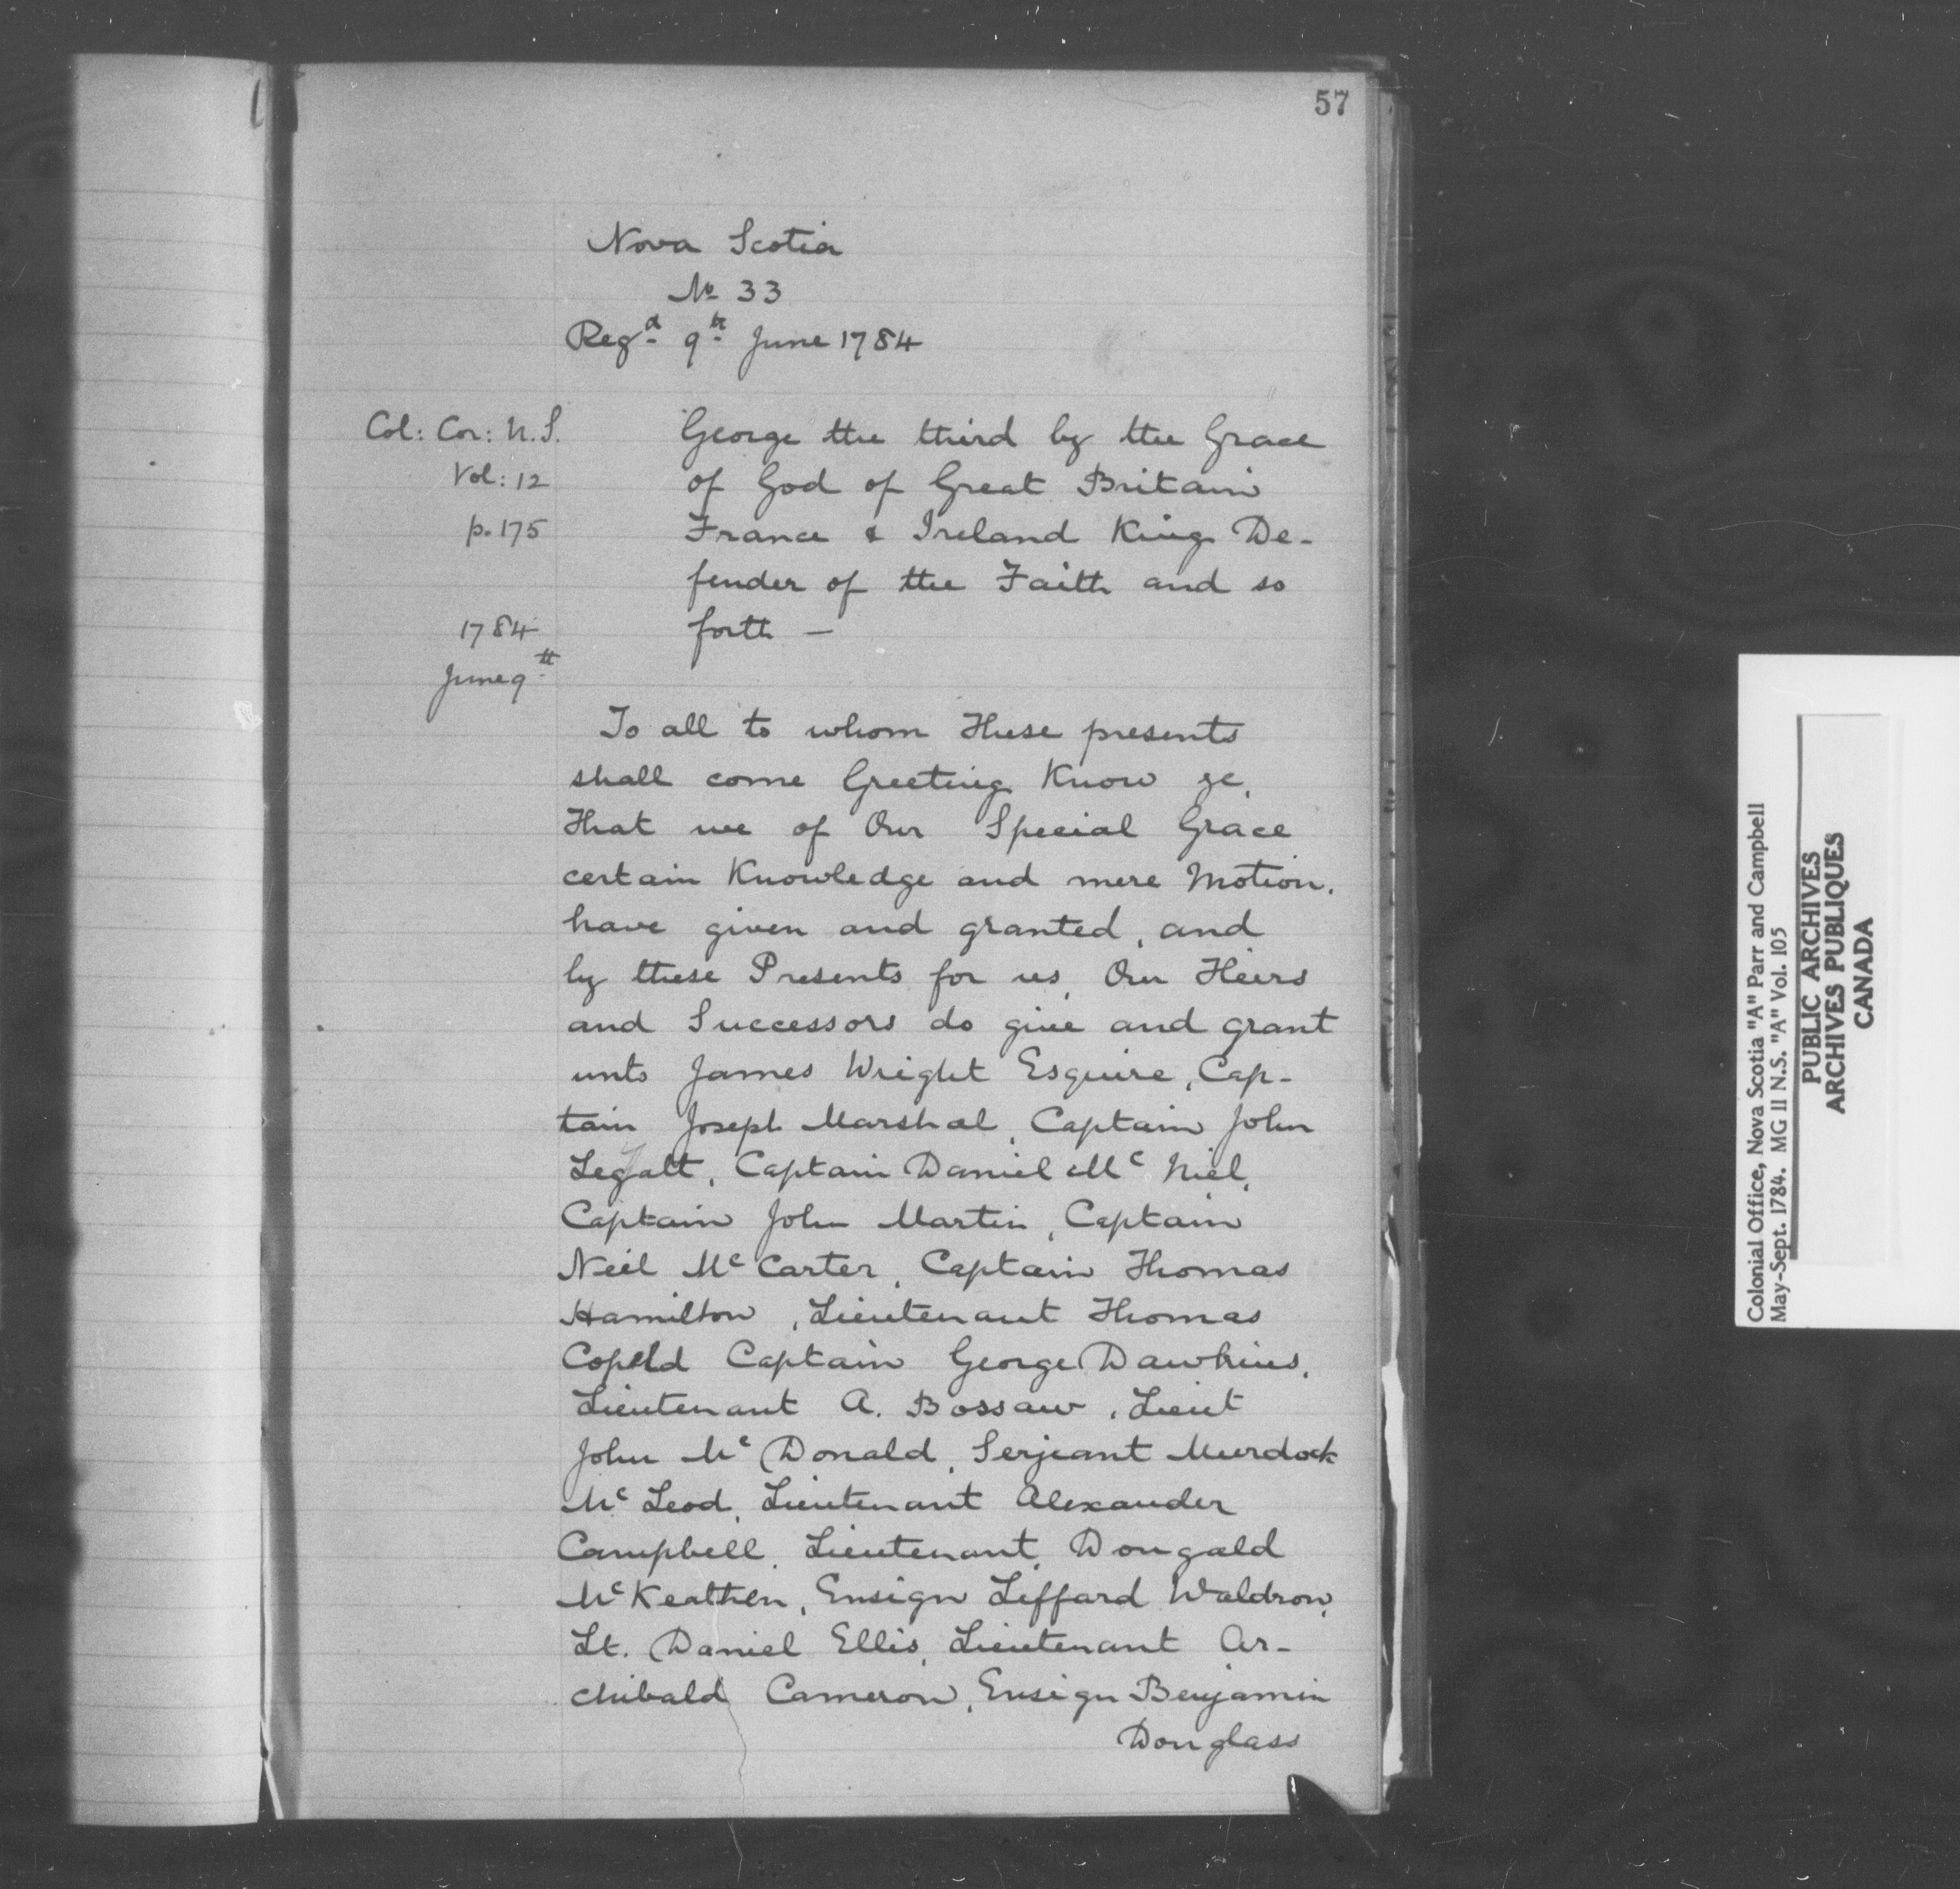 57
Nova Scotia
No 33
Regd 9th June 1784
Col: Cor: N.S.
Vol: 12
p. 175
1784
June 9th
George the third by the Grace
of God of Great Britain
France & Ireland King De-
fender of the Faith and so
forth —
To all to whom These presents
shall come Greeting Know ye,
That we of Our Special Grace
certain Knowledge and mere Motion,
have given and granted, and
by these Presents for us, Our Heirs
and Successors do give and grant
unto James Wright Esquire, Cap-
tain Joseph Marshal, Captain John
Legatt, Captain Daniel Mc Niel,
Captain John Martin, Captain
Neil Mc Carter, Captain Thomas
Hamilton, Lieutenant Thomas
Copeld Captain George Dawkins,
Lieutenant A. Bossaw, Lieut
John Mc Donald, Serjeant Murdock
Mc Leod, Lieutenant Alexander
Campbell, Lieutenant, Dongald
Mc Keathen, Ensign Liffard Waldron,
Lt. Daniel Ellis, Lieutenant Ar-
chibald Cameron, Ensign Benjamin
Donglass
Colonial Office, Nova Scotia "A" Parr and Campbell
May-Sept. 1784. MG 11 N.S. "A" Vol. 105
PUBLIC ARCHIVES
ARCHIVES PUBLIQUES
CANADA